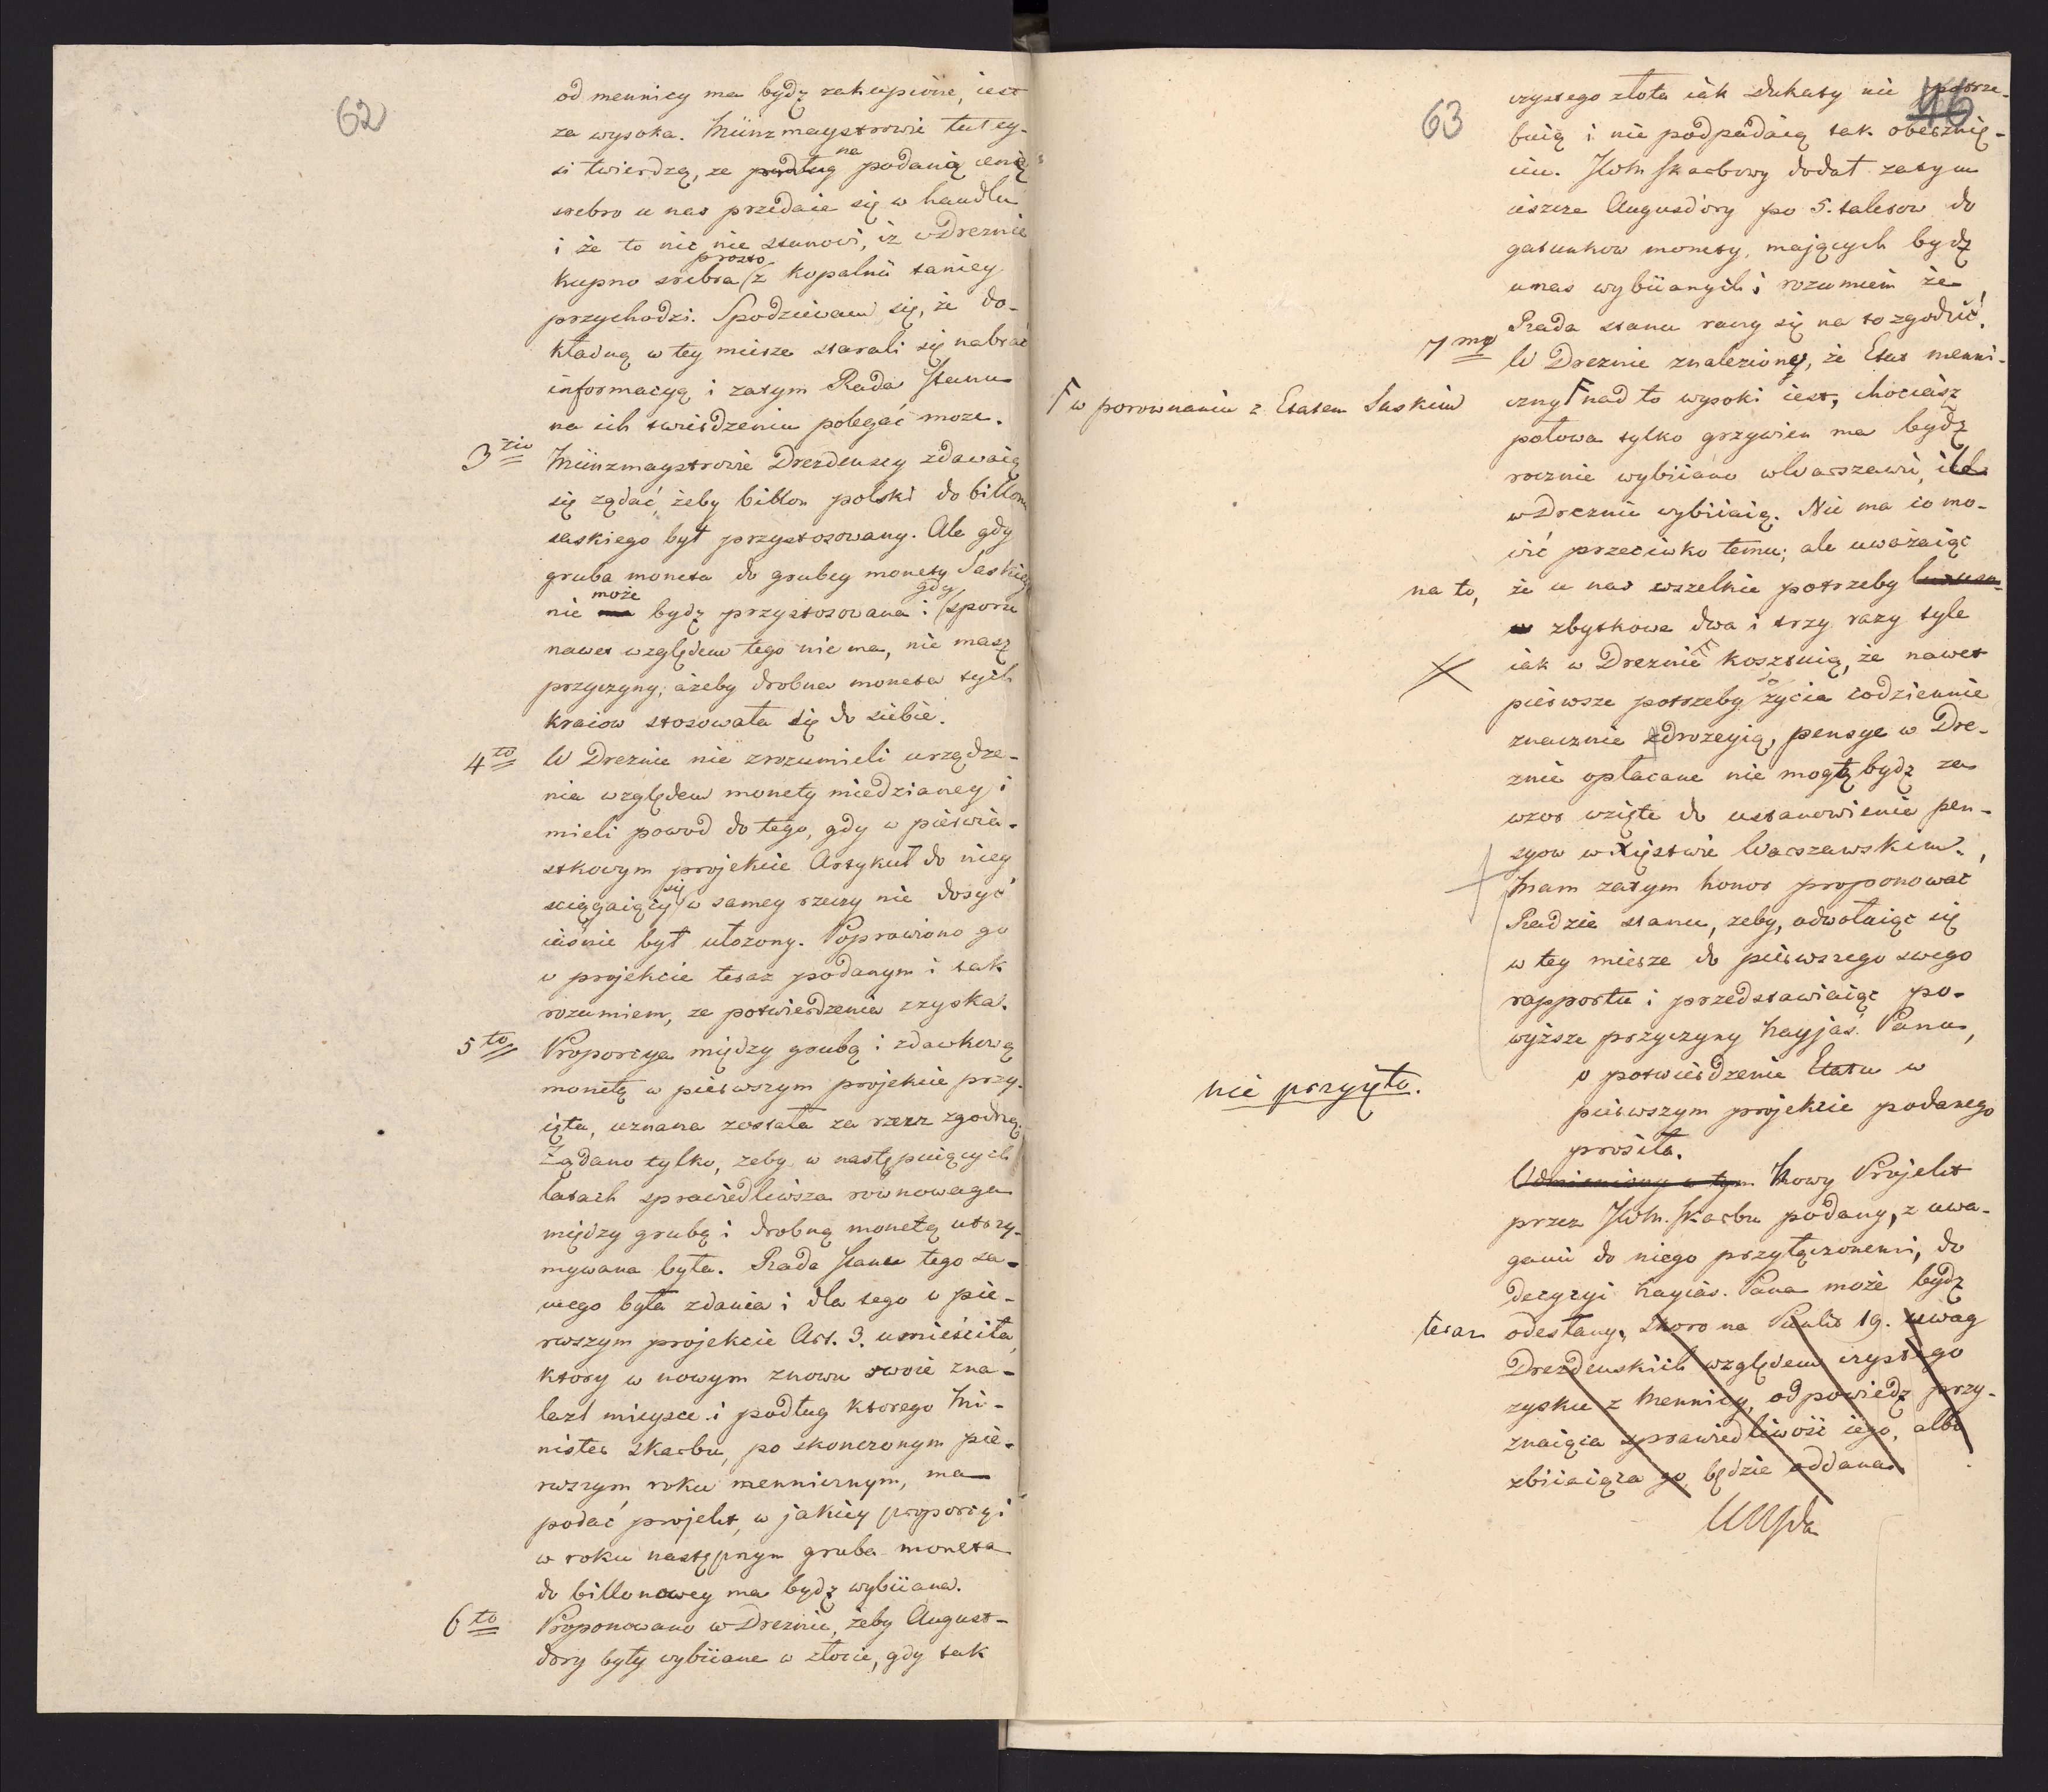 62
od mennicy ma bydź zakupione, iest
za wysoka. Münzmaystrowie tutey-
si twierdzą, ze podług na podaną cenę
srebro u nas przedaie się w handlu
i że to nic nie stanowi, iż w Dreznie
kupno srebra prosto z kopalnii taniey
przychodzi. Spodziewam się, że do-
kładną w tey mierze starali się nabrać
informacyą i zatym Rada Stanu
na ich twierdzeniu polegać moze.
3tio Münzmaystrowie Drezdenscy zdawaią
się ządać, żeby billon polski do billonu
saskiego był przystosowany. Ale gdy
gruba moneta do grubey monety Saskiey
nie ma może bydź przystosowana i gdy sporu
nawet względem tego nie ma, nie masz
przyczyny, ażeby drobna moneta tych
kraiow stosowała się do siebie.
4to W Dreznie nie zrozumieli urządze-
nia względem monety miedzianey i
mieli powod do tego, gdy w pierwia-
stkowym projekcie Artykuł do niey
sciągaiący się w samey rzeczy nie dosyć
iaśnie był ułozony. Poprawiono go
w projekcie teraz podanym i tak
rozumiem, ze potwierdzenia zzyska.
5to Proporcya między grubą i zdawkową
monetą w pierwszym projekcie przy-
ięta, uznana została za rzecz zgodną.
Ządano tylko, zeby w następuiących
latach sprawiedliwsza rownowaga
między grubą i drobną monetą utrzy-
mywana była. Rada Stanu tego sa-
mego była zdania i dla tego w pie-
rwszym projekcie Art. 3. umieściła,
ktory w nowym znowu swoie zna-
lazł mieysce i podług ktorego Mi-
nister Skarbu, po skonczonym pie-
rwszym roku mennicznym, ma
podać projekt, w jakiey proporcyi
w roku następnym gruba moneta
do billonowey ma bydź wybiiana.
6to Proponowano w Dreznie, żeby August-
dory były wybiiane w złocie, gdy tak
63
46
czystego złota iak Dukaty nie potrze-
buią i nie podpadaią tak obeznię-
ciu. JWM Skarbowy dodał zatym
ieszcze Augusdory po 5. talerow do
gatunkow monety, maiących bydź
u nas wybiianych i rozumiem że
Rada stanu raczy się na to zgodzić.
7mo W Dreznie znaleziono, że Etat menni-
czny F nad to wysoki iest, chociasz
F w porownaniu z Etatem Saskim
połowa tylko grzywien ma bydź
rocznie wybiiano w Warszawie, ile
w Dreznie wybiiaią. Nie ma co mo-
wić przeciwko temu; ale uważaiąc
na to, że u nas wszelkie potrzeby
zbytkowe dwa i trzy razy tyle
iak w Dreznie kosztuią, że nawet
pierwsze potrzeby do życia codziennie
znacznie zdrozeyią, pensye w Dre-
znie opłacane nie mogą bydź za
wzor wzięte do ustanowienia pen-
syow w Xięstwie Warszawskim.
Mam zatym honor proponować
Radzie stanu, zeby, odwołaiąc się
w tey mierze do pierwszego swego
rapportu i przedstawiaiąc po-
wyższe przyczyny Nayjaś. Panu,
o potwierdzenie Etatu w
pierwszym projekcie podanego
prosiła.
nie przyięto.
Odmieniony w tym Nowy Projekt
przez JWM. Skarbu podany, z uwa-
gami do niego przyłączonemi, do
decyzyi Nayias. Pana może bydź
teraz odesłany. Skoro na Punkt 19. uwag
Drezdenskich względem czystego
zysku z Mennicy, odpowiedź przy-
znaiąca sprawiedliwość iego, albo
zbiiaiąca go, będzie oddana.